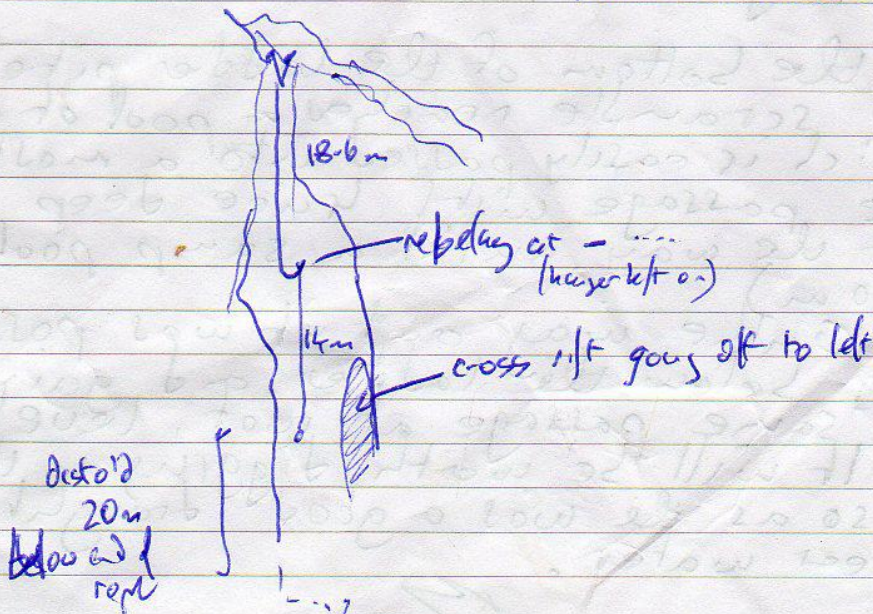 18.6m
rebelay at – ....
(hanger left on)
14m
cross rift going off to left
20m
below end of
rope